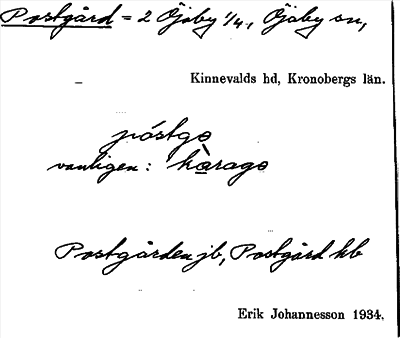 Postgård = 2 Öjaby 1/4, Öjaby sn,
Kinnevalds hd, Kronobergs län.
póstgo
vanligen: hàrago
Postgården jb, Postgård kb
Erik Johannesson 1934.